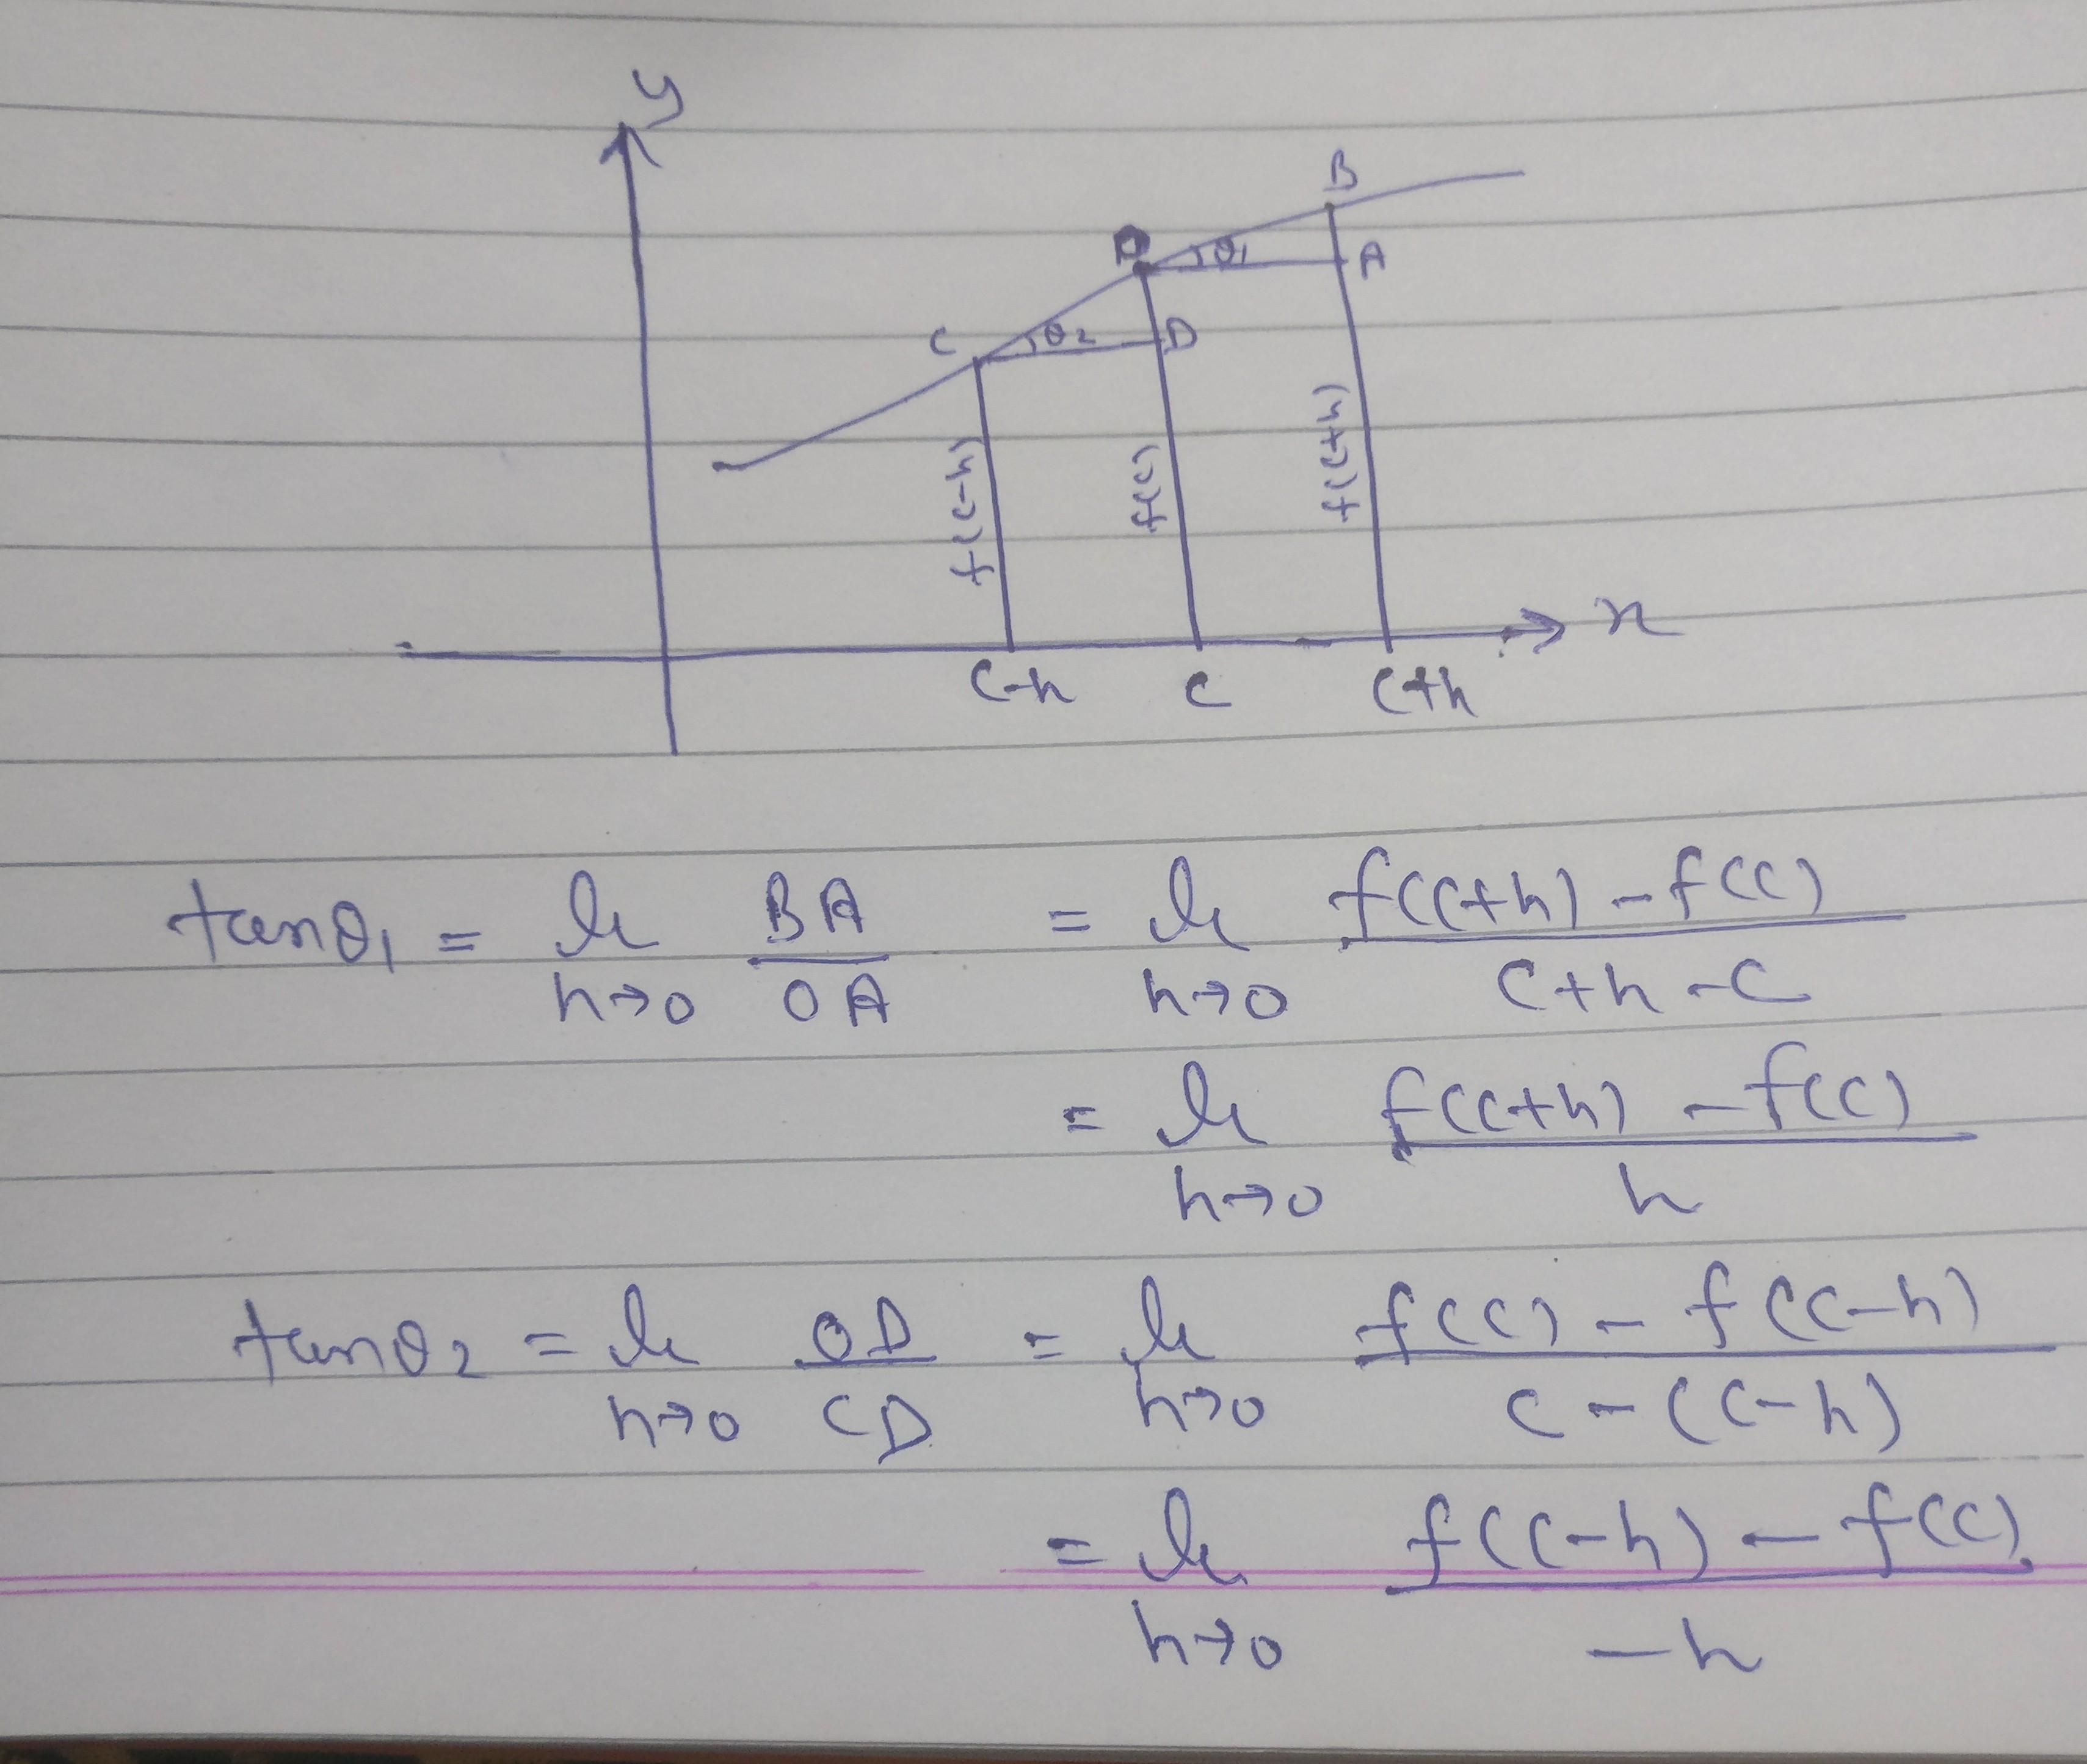 y
B
O θ1 A
C θ2 D
f(c-h) f(c) f(c+h)
x
c-h c c+h
tanθ1 = lt h→0 BA/OA = lt h→0 f(c+h) - f(c)/c+h-c
= lt h→0 f(c+h) - f(c)/h
tanθ2 = lt h→0 OD/CD = lt h→0 f(c) - f(c-h)/c-(c-h)
= lt h→0 f(c-h) - f(c)/-h